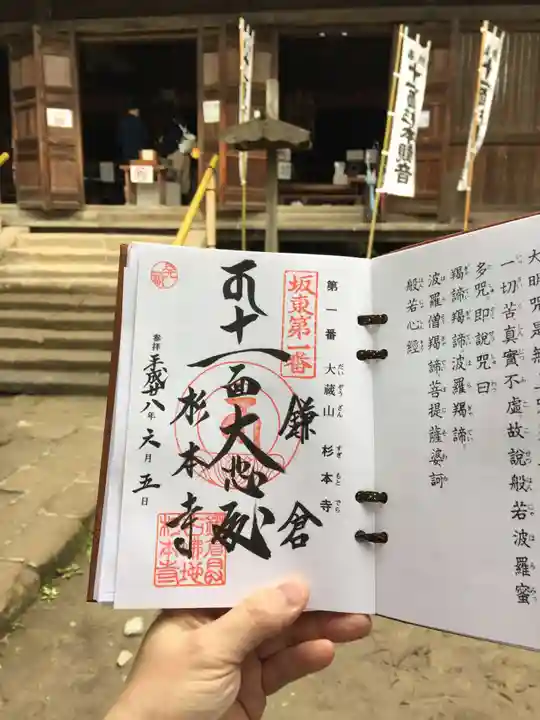 十一面杉本観音
大明呪是無上
一切苦真實不虛故說般若波羅蜜
多呪即說呪曰
羯諦羯諦波羅羯諦
波羅僧羯諦菩提薩婆訶
般若心経
坂東第一番
第一番 大蔵山 杉本寺
だいぞうざん すぎもとでら
鎌倉
十一面大悲殿
杉本寺
参拝 平成廿八年 六月 五日